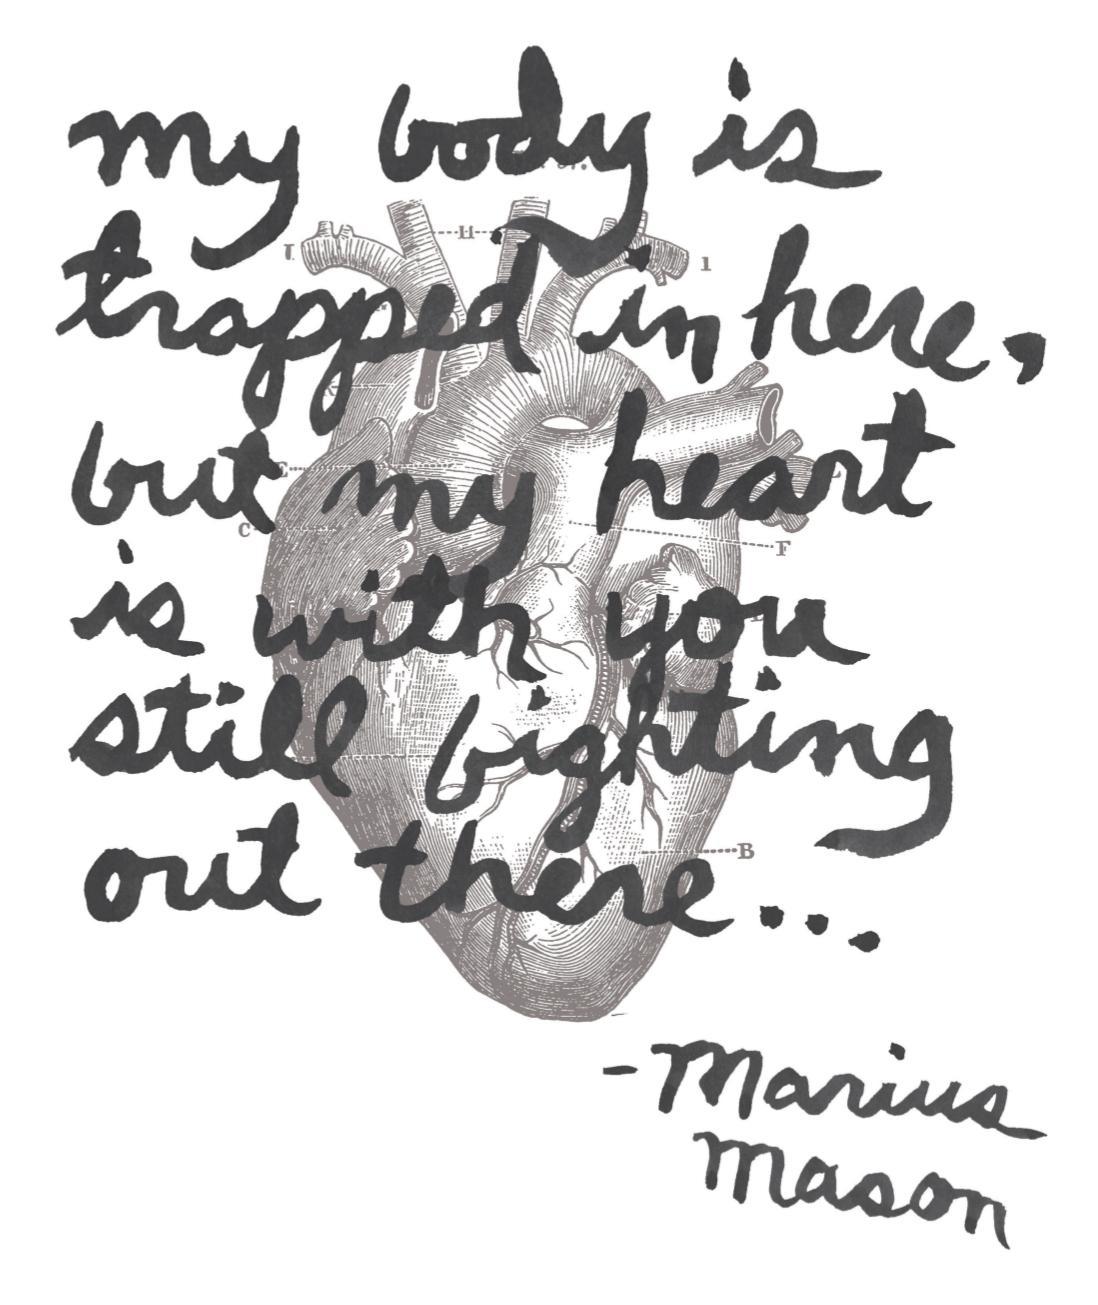 my body is
trapped in here,
but my heart
is with you
still fighting
out there...
-Marius
Mason
H
I
1
E
C
F
B